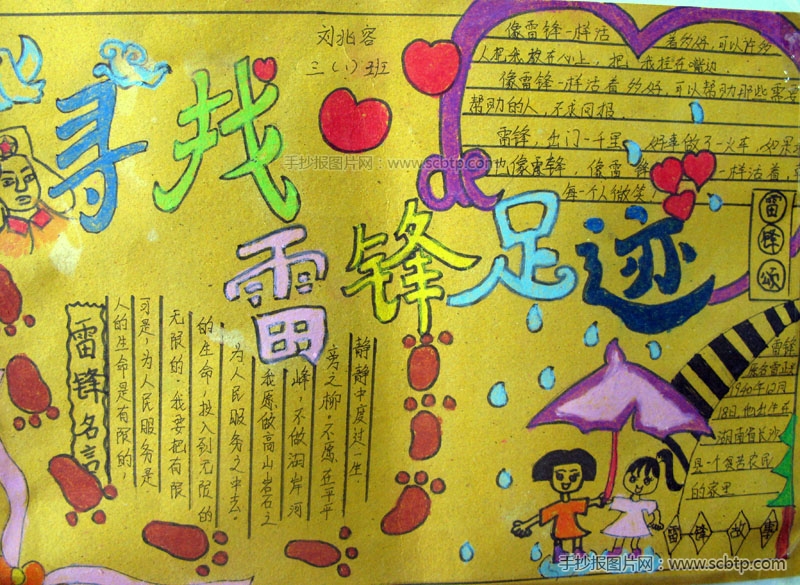 刘兆容
三(1)班
寻找de
雷锋足迹
像雷锋一样活着多好,可以许多
人把米放在心上,把
我挂在嘴边
像雷锋一样活着多好,可以帮助那些需要
帮助的人,不求回报
雷锋 出门一千里 好事做了一火车
也像雷锋,像雷锋一样活着
每一个人微笑!
雷锋颂
手抄报图片网:www.scbtp.com
雷锋名言
人的生命是有限的,
可是,为人民服务是
无限的.我要把有限
的生命,投入到无限的
为人民服务之中去。
我愿做高山岩石之
峰,不做湖岸河
旁之柳.不愿在平平
静静中度过一生.
雷锋
1940年12月
18日,他出生在
湖南省长沙
县一个贫苦农民
的家里.
雷锋故事
手抄报图片网:www.scbtp.com